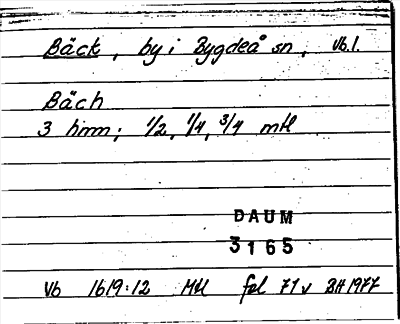 Bäck, by i Bygdeå sn, Vb.l.
Bäch
3 hmn; 1/2, 1/4, 3/4 mtl
DAUM
3165
Vb 1619:12 Mtl fol 71v BH 1977